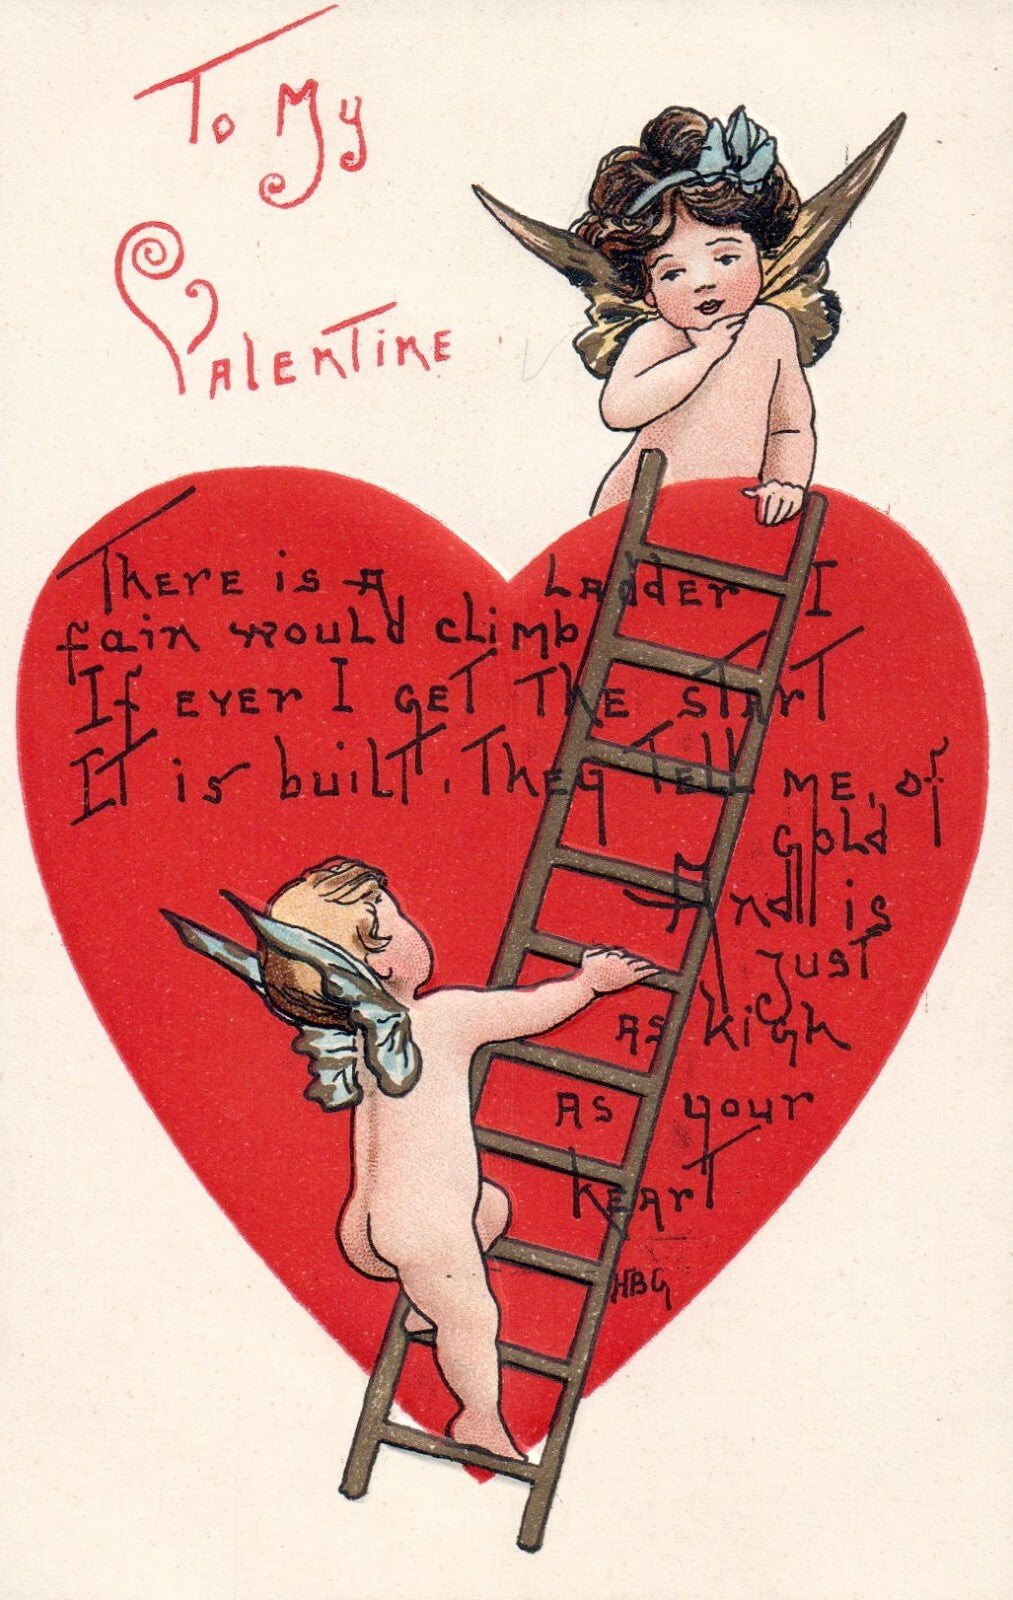 To My
Valentine
There is a Ladder I
fain would climb
If ever I get The start
IT is built, They Tell me, of
gold
And is
just
as high
as your
heart
HBG